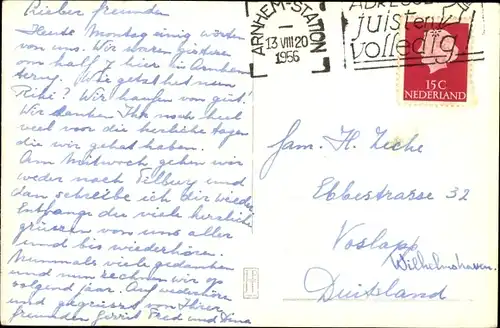 Lieber freunden
Heute Montag einig wörten
von uns. Wir waren gisteren
om half 7 hier in Arnhem
terug. Wie getst het nun
Riki? Wir haufen von gut!
Wir danken Ihr noch heel
veel vor die herliche tagen
die wir gehat haben.
Am Mitwoch gehen wir
weder nach Tilburg und
dan schreibe ich dir wieder
Entfange du viele herzliche
grüssen von uns aller
und bis wiederhören.
Nunmals viele gedanken
und nun rechen wir op
volgend jaar. Auf wiederhören
und gegrüsst von Ihrer
freunden Gerrit Fred und Dina
ARNHEM-STATION
13 VIII 20
1956
juist en
volledig
15 C
NEDERLAND
Fam. H. Zeche
Ebbestrasse 32
Voslapp
Wilhelmshaven
Duitsland